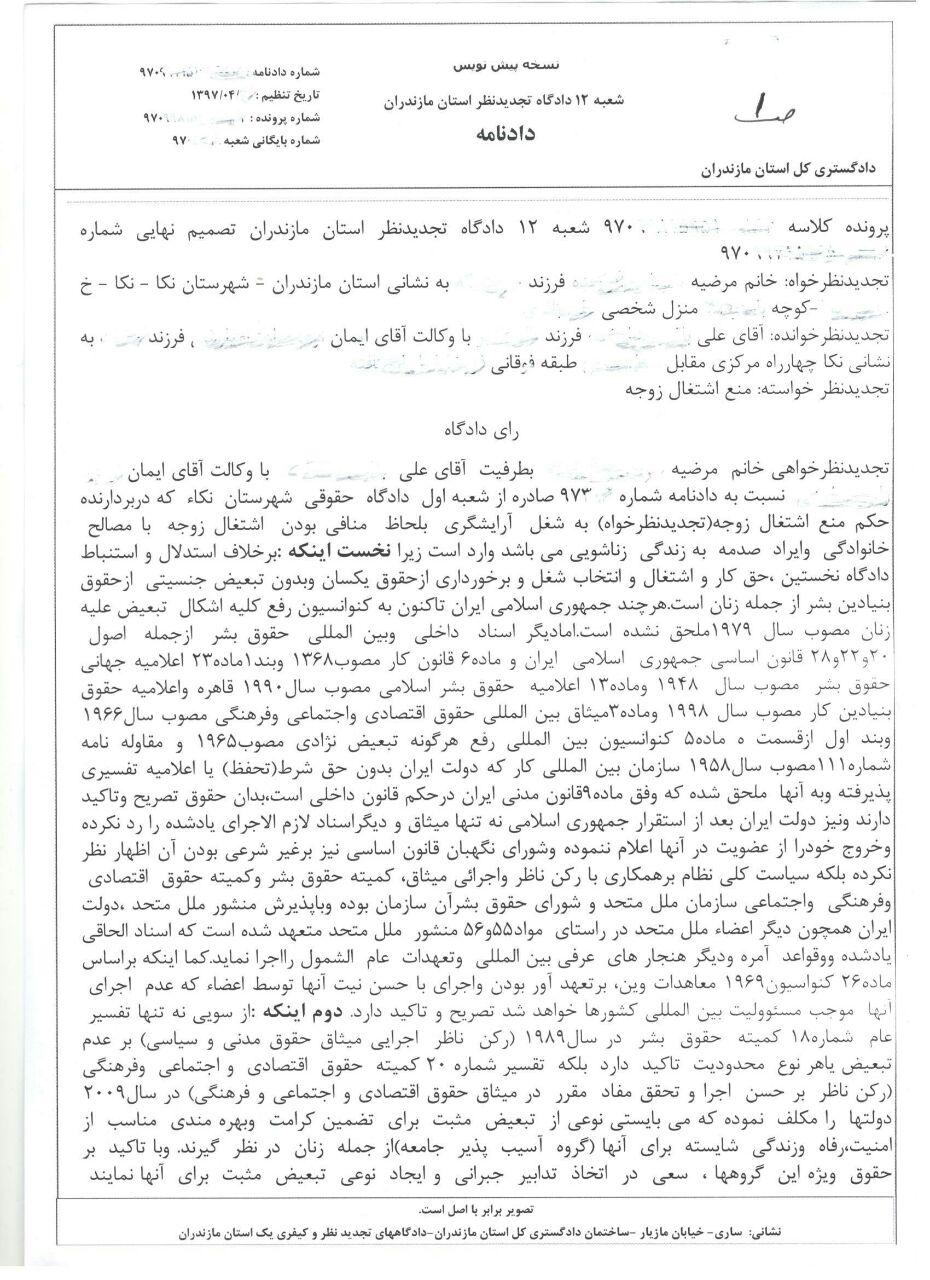 نسخه پیش نویس
شعبه ۱۲ دادگاه تجدیدنظر استان مازندران
دادنامه
شماره دادنامه: ۹۷۰۹
تاریخ تنظیم: ۱۳۹۷/۰۴/
شماره پرونده: ۹۷۰۹
شماره بایگانی شعبه: ۹۷۰
ص ۱
دادگستری کل استان مازندران
پرونده کلاسه ۹۷۰ شعبه ۱۲ دادگاه تجدیدنظر استان مازندران تصمیم نهایی شماره
۹۷۰
تجدیدنظرخواه: خانم مرضیه فرزند به نشانی استان مازندران - شهرستان نکا - نکا - خ
-کوچه منزل شخصی
تجدیدنظرخوانده: آقای علی فرزند با وکالت آقای ایمان فرزند به
نشانی نکا چهارراه مرکزی مقابل طبقه فوقانی
تجدیدنظر خواسته: منع اشتغال زوجه
رای دادگاه
تجدیدنظرخواهی خانم مرضیه بطرفیت آقای علی با وکالت آقای ایمان
نسبت به دادنامه شماره ۹۷۳ صادره از شعبه اول دادگاه حقوقی شهرستان نکاء که دربردارنده
حکم منع اشتغال زوجه(تجدیدنظرخواه) به شغل آرایشگری بلحاظ منافی بودن اشتغال زوجه با مصالح
خانوادگی وایراد صدمه به زندگی زناشویی می باشد وارد است زیرا نخست اینکه :برخلاف استدلال و استنباط
دادگاه نخستین ،حق کار و اشتغال و انتخاب شغل و برخورداری ازحقوق یکسان وبدون تبعیض جنسیتی ازحقوق
بنیادین بشر از جمله زنان است.هرچند جمهوری اسلامی ایران تاکنون به کنوانسیون رفع کلیه اشکال تبعیض علیه
زنان مصوب سال ۱۹۷۹ملحق نشده است.امادیگر اسناد داخلی وبین المللی حقوق بشر ازجمله اصول
۲۰و۲۲و۲۸ قانون اساسی جمهوری اسلامی ایران و ماده۶ قانون کار مصوب۱۳۶۸ وبند۱ماده۲۳ اعلامیه جهانی
حقوق بشر مصوب سال ۱۹۴۸ وماده۱۳ اعلامیه حقوق بشر اسلامی مصوب سال۱۹۹۰ قاهره واعلامیه حقوق
بنیادین کار مصوب سال ۱۹۹۸ وماده۳میثاق بین المللی حقوق اقتصادی واجتماعی وفرهنگی مصوب سال۱۹۶۶
وبند اول ازقسمت ه ماده۵ کنوانسیون بین المللی رفع هرگونه تبعیض نژادی مصوب۱۹۶۵ و مقاوله نامه
شماره۱۱۱مصوب سال۱۹۵۸ سازمان بین المللی کار که دولت ایران بدون حق شرط(تحفظ) یا اعلامیه تفسیری
پذیرفته وبه آنها ملحق شده که وفق ماده۹قانون مدنی ایران درحکم قانون داخلی است،بدان حقوق تصریح وتاکید
دارند ونیز دولت ایران بعد از استقرار جمهوری اسلامی نه تنها میثاق و دیگراسناد لازم الاجرای یادشده را رد نکرده
وخروج خودرا از عضویت در آنها اعلام ننموده وشورای نگهبان قانون اساسی نیز برغیر شرعی بودن آن اظهار نظر
نکرده بلکه سیاست کلی نظام برهمکاری با رکن ناظر واجرائی میثاق، کمیته حقوق بشر وکمیته حقوق اقتصادی
وفرهنگی واجتماعی سازمان ملل متحد و شورای حقوق بشرآن سازمان بوده وباپذیرش منشور ملل متحد ،دولت
ایران همچون دیگر اعضاء ملل متحد در راستای مواد۵۵و۵۶ منشور ملل متحد متعهد شده است که اسناد الحاقی
یادشده ووقواعد آمره ودیگر هنجار های عرفی بین المللی وتعهدات عام الشمول رااجرا نماید.کما اینکه براساس
ماده۲۶ کنواسیون۱۹۶۹ معاهدات وین، برتعهد آور بودن واجرای با حسن نیت آنها توسط اعضاء که عدم اجرای
آنها موجب مسئوولیت بین المللی کشورها خواهد شد تصریح و تاکید دارد. دوم اینکه :از سویی نه تنها تفسیر
عام شماره۱۸ کمیته حقوق بشر در سال۱۹۸۹ (رکن ناظر اجرایی میثاق حقوق مدنی و سیاسی) بر عدم
تبعیض یاهر نوع محدودیت تاکید دارد بلکه تفسیر شماره ۲۰ کمیته حقوق اقتصادی و اجتماعی وفرهنگی
(رکن ناظر بر حسن اجرا و تحقق مفاد مقرر در میثاق حقوق اقتصادی و اجتماعی و فرهنگی) در سال۲۰۰۹
دولتها را مکلف نموده که می بایستی نوعی از تبعیض مثبت برای تضمین کرامت وبهره مندی مناسب از
امنیت،رفاه وزندگی شایسته برای آنها (گروه آسیب پذیر جامعه)از جمله زنان در نظر گیرند. وبا تاکید بر
حقوق ویژه این گروهها ، سعی در اتخاذ تدابیر جبرانی و ایجاد نوعی تبعیض مثبت برای آنها نمایند
تصویر برابر با اصل است.
نشانی: ساری- خیابان مازیار -ساختمان دادگستری کل استان مازندران-دادگاههای تجدید نظر و کیفری یک استان مازندران